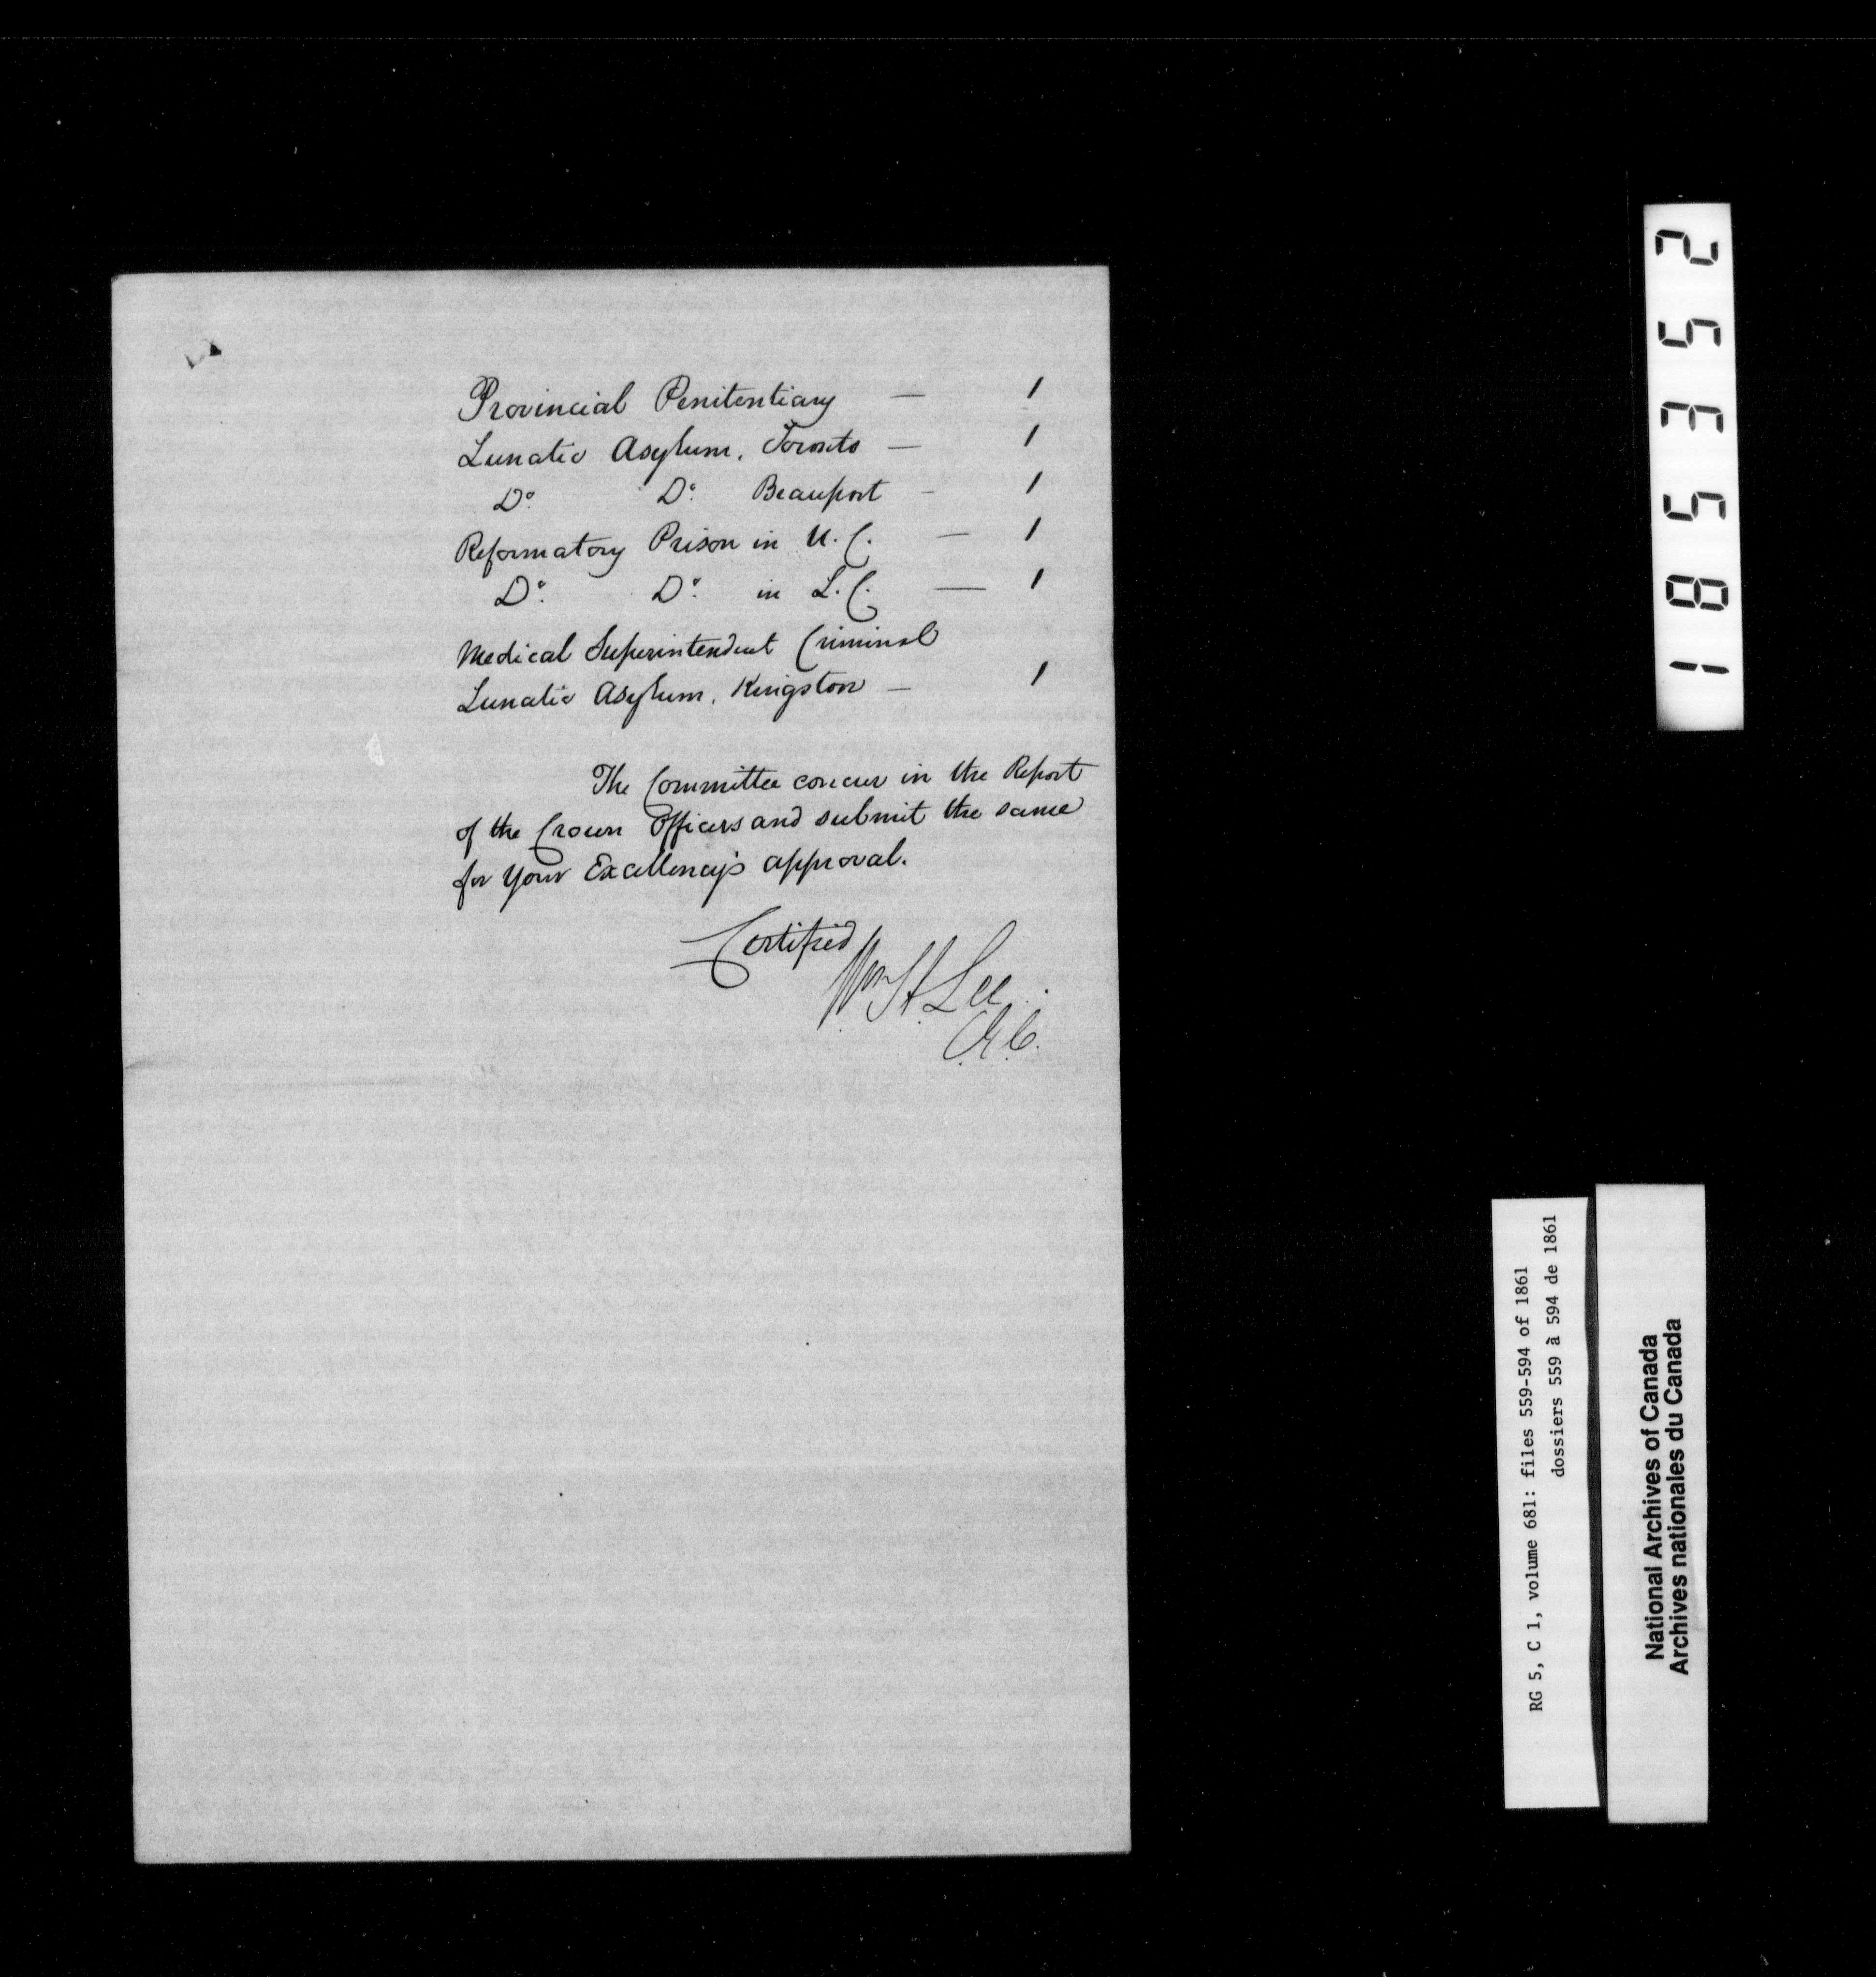 Provincial Penitentiary — 1
Lunatic Asylum, Toronto — 1
Do. Do. Beauport - 1
Reformatory Prison in U.C. — 1
Do. Do. in L.C. — 1
Medical Superintendent Criminal
Lunatic Asylum, Kingston — 1
The Committee concur in the Report
of the Crown Officers and submit the same
for Your Excellency's approval.
Certified
Wm H Lee
C.E.C.
1 8 5 3 5 2
RG 5, C 1, volume 681: files 559-594 of 1861
dossiers 559 à 594 de 1861
National Archives of Canada
Archives nationales du Canada